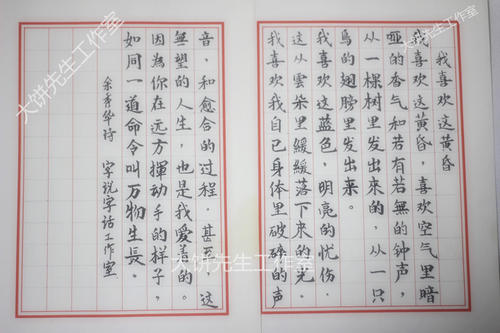 我喜欢这黄昏
我喜欢这黄昏,喜欢空气里暗
哑的香气和若有若無的钟声,
从一棵树里发出來的,从一只
鸟的翅膀里发出來。
我喜欢这蓝色,明亮的忧伤.
这从雲朵里緩緩落下來的光
我喜欢我自己身体里破碎的声
音,和愈合的过程.甚至,这
無望的人生,也是我爱着的。
因為你在远方揮動手的样子,
如同一道命令叫万物生長。
余秀华诗 字说字话工作室
大饼先生工作室
大饼先生工作室
大饼先生工作室